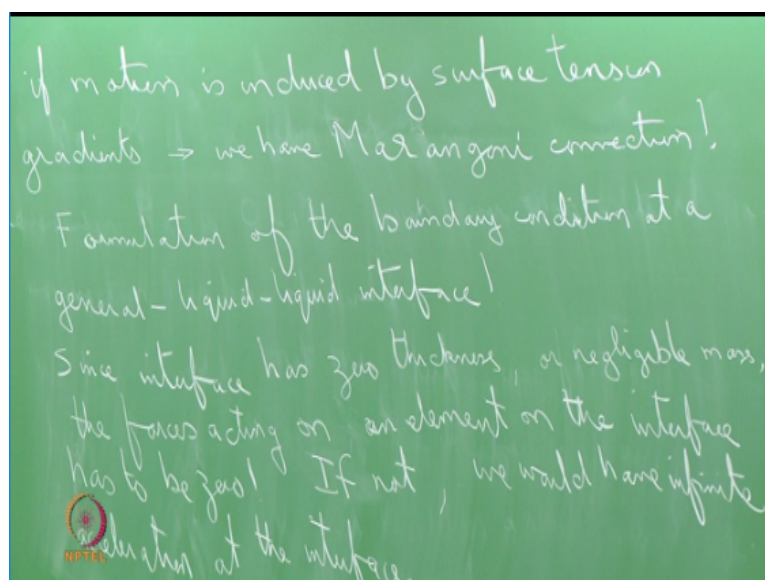 if motion is induced by surface tension
gradients → we have Marangoni convection!
Formulation of the boundary condition at a
general-liquid-liquid interface!
Since interface has zero thickness, or negligible mass,
the forces acting on an element on the interface
has to be zero! If not, we would have infinite
acceleration at the interface.
NPTEL